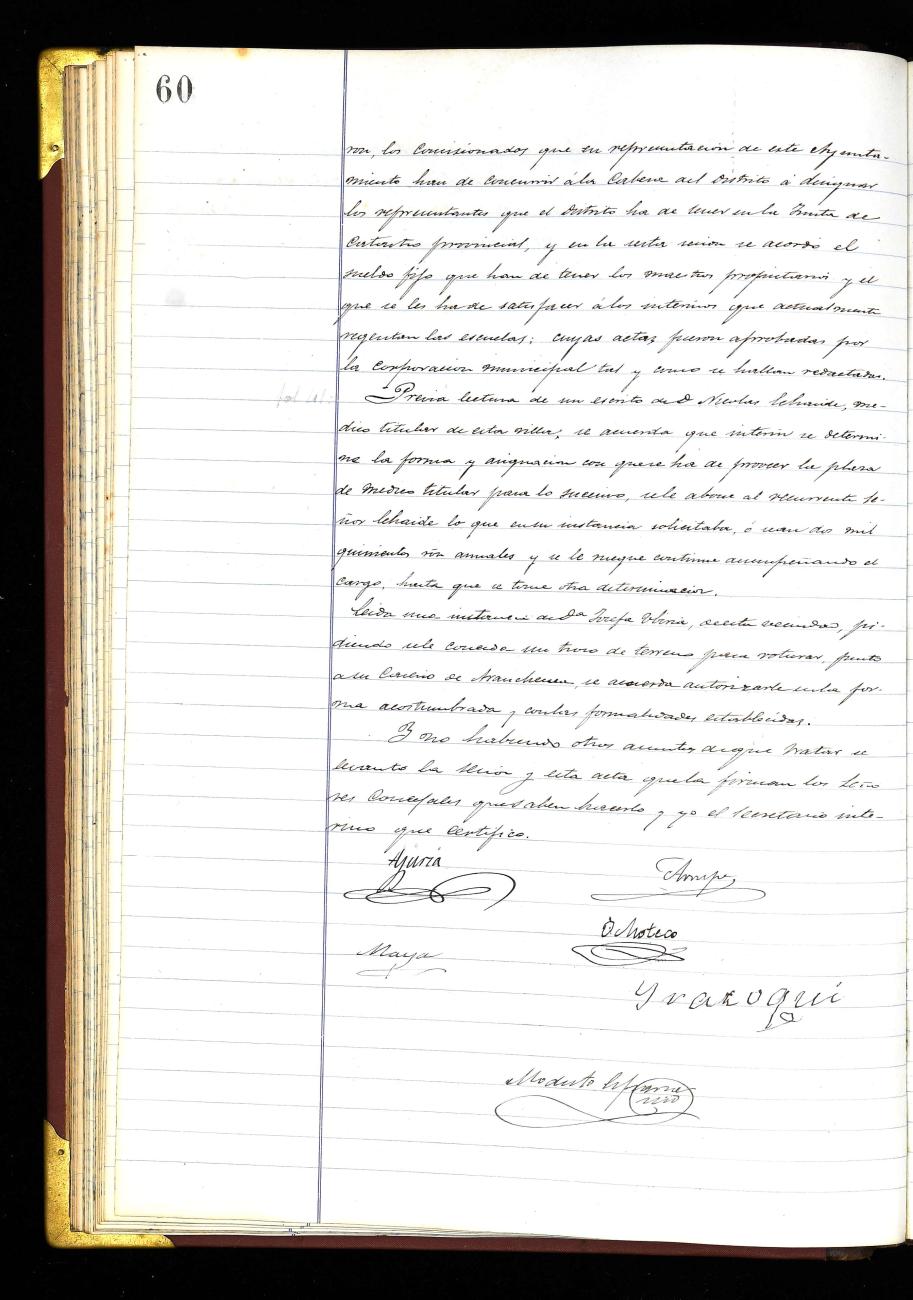 60
ron, los Comisionados que en representacion de este Ayunta-
miento han de concurrir á la Cabeza del Distrito á designar
los representantes que el distrito ha de tener en la Junta de
Catastro provincial, y en la sesta sesion se acordó el
sueldo fijo que han de tener los maestros propietarios y el
que se les ha de satisfacer á los interinos que actualmente
regentan las escuelas; cuyas actas fueron aprobadas por
la corporacion municipal tal y como se hallan redactadas.
Previa lectura de un escrito de D Nicolas Echaide, me-
dico titular de esta villa, se acuerda que interin se determi-
na la forma y asignacion con que se ha de proveer la plaza
de medico titular para lo sucesivo, se le abone al recurrente Se-
ñor Echaide lo que en su instancia solicitaba, ó sean dos mil
quinientos rón anuales y se le ruegue continue desempeñando el
cargo, hasta que se tome otra determinacion.
Leida una instancia de Dª Josefa, de esta vecindad, pi-
diendo se le conceda un trozo de terreno para roturar, junto
a su Caserio de, se acuerda autorizarle en la for-
ma acostumbrada y con las formalidades establecidas.
Y no habiendo otros asuntos de que tratar se
levanto la sesion y esta acta que la firman los Seño
res Concejales que saben hacerlo y yo el Secretario inte-
rino que Certifico.
Ajuria
Arrupe
Ochoteco
Maya
Yrazoqui
Modesto